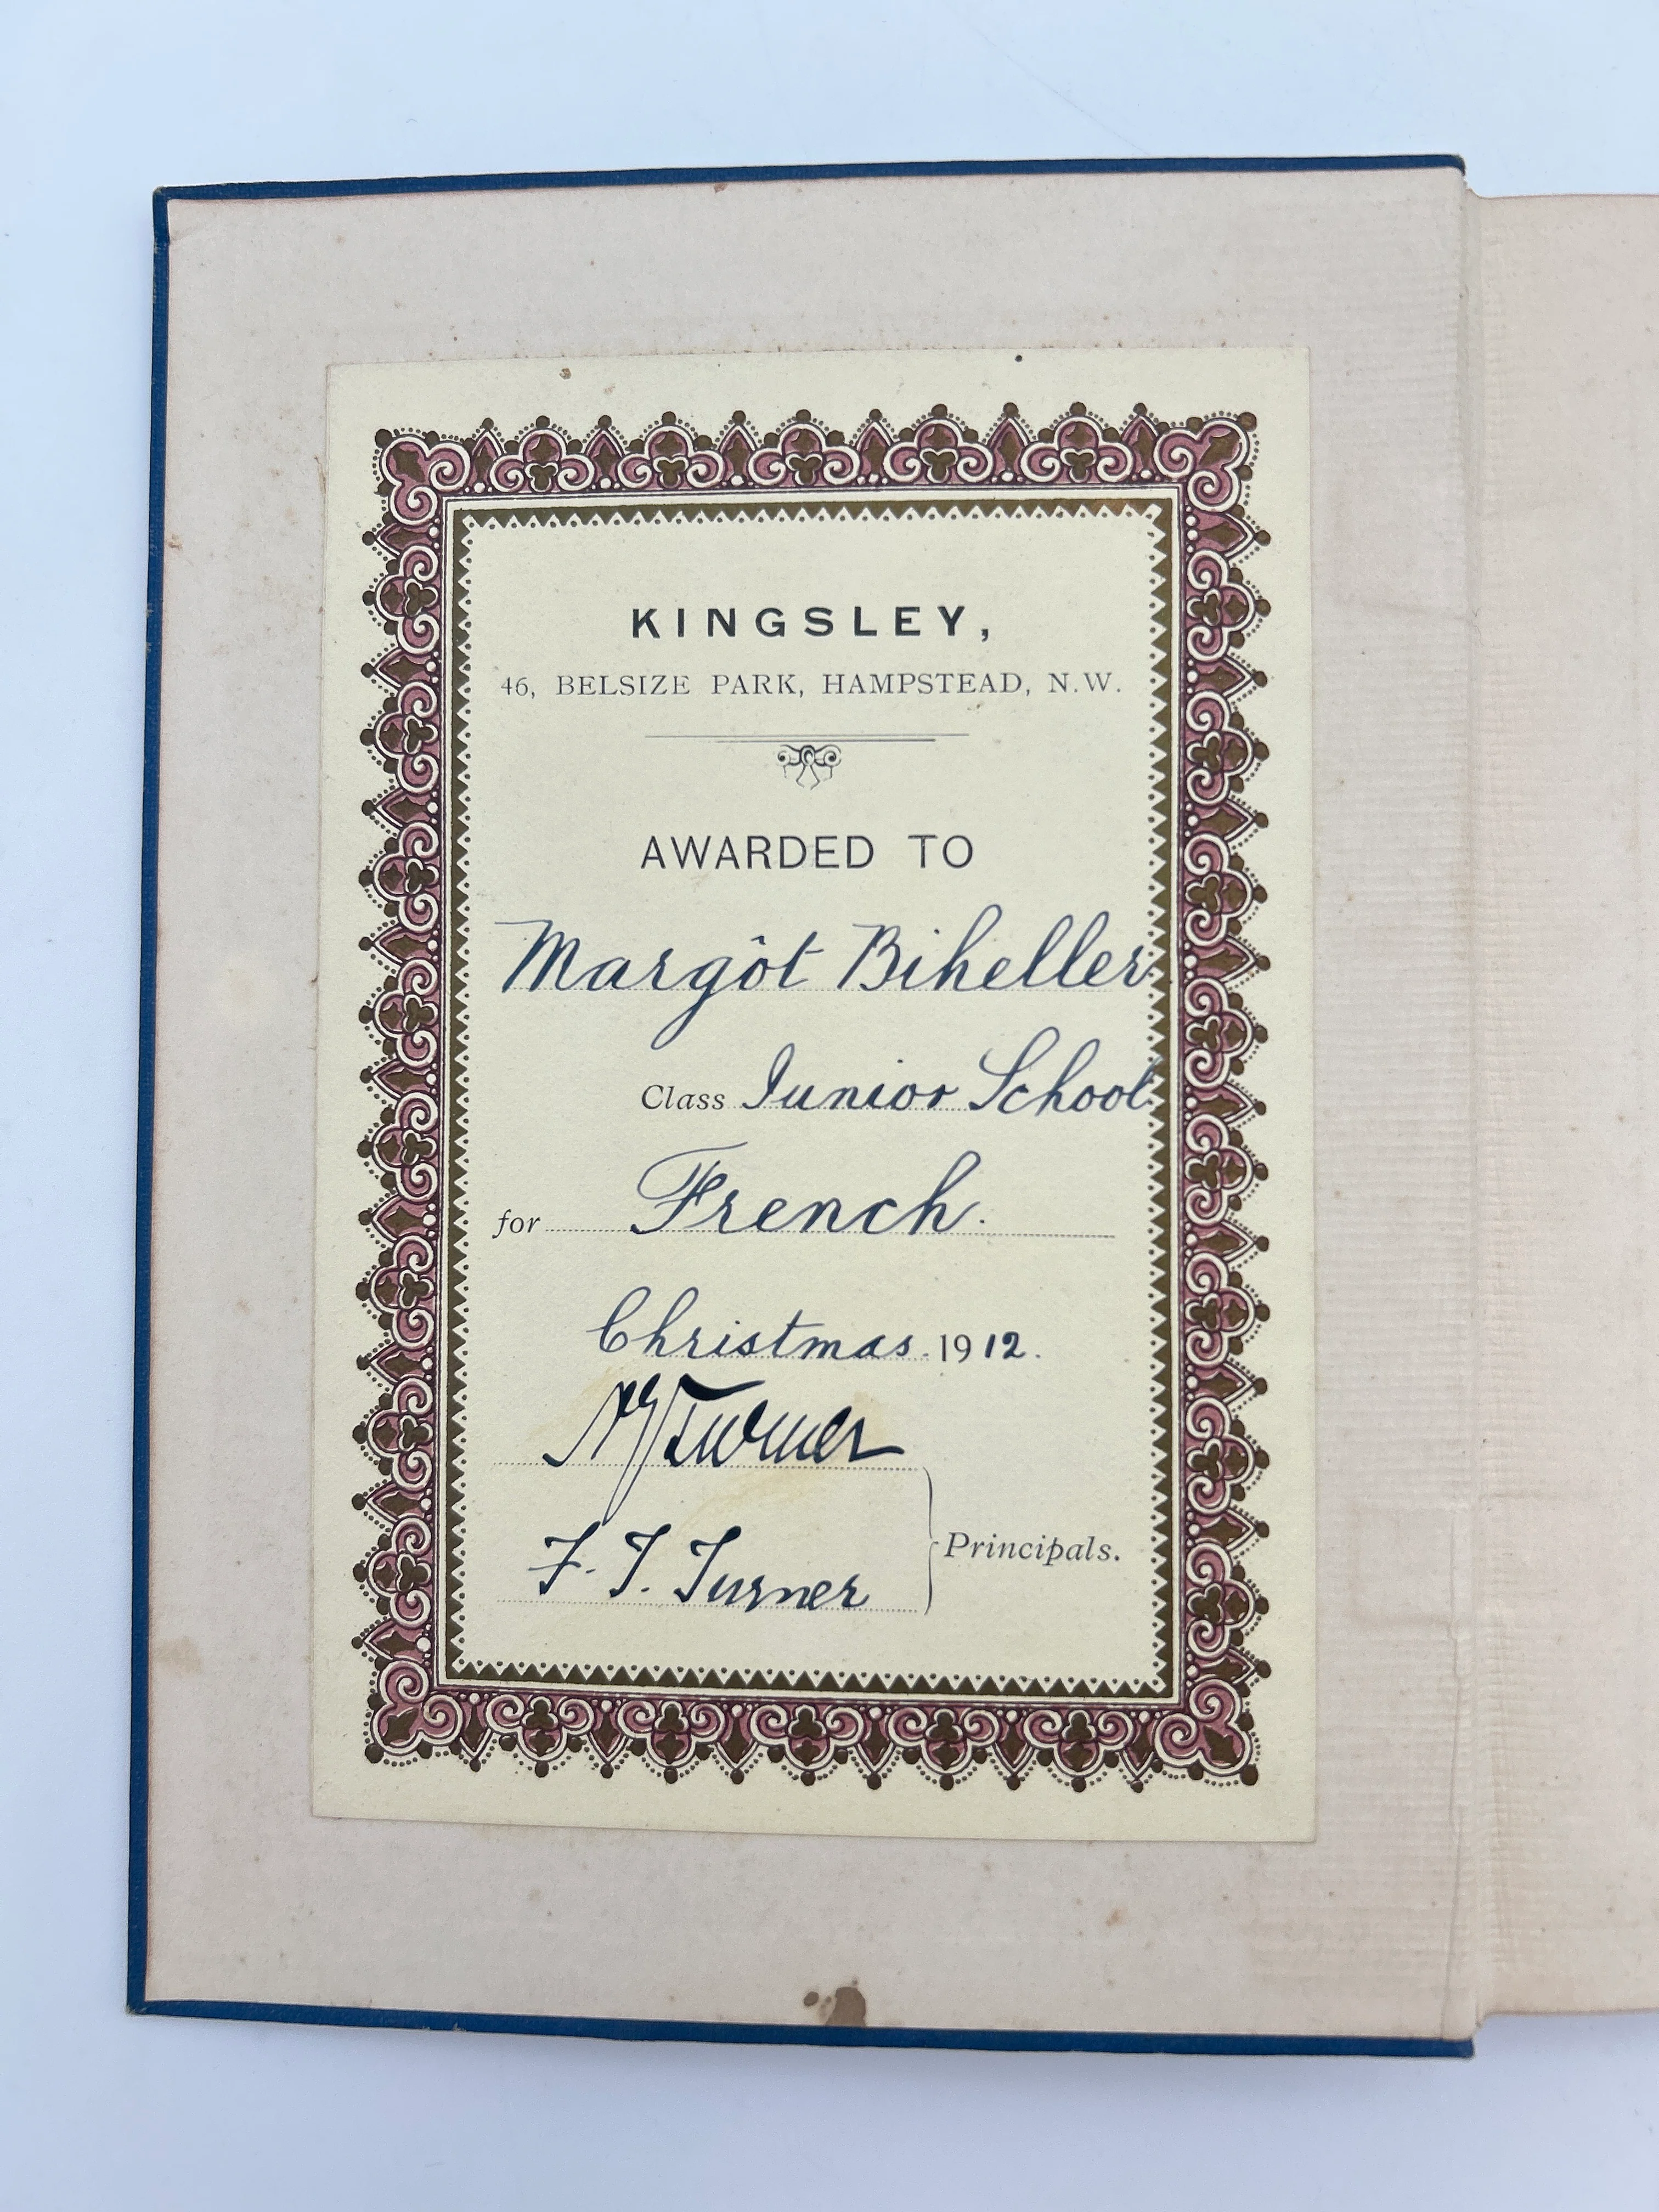 KINGSLEY,
46, BELSIZE PARK, HAMPSTEAD, N.W.
AWARDED TO
Margôt Biheller
Class Junior School
for French.
Christmas 1912.
Turner
F. T. Turner
Principals.